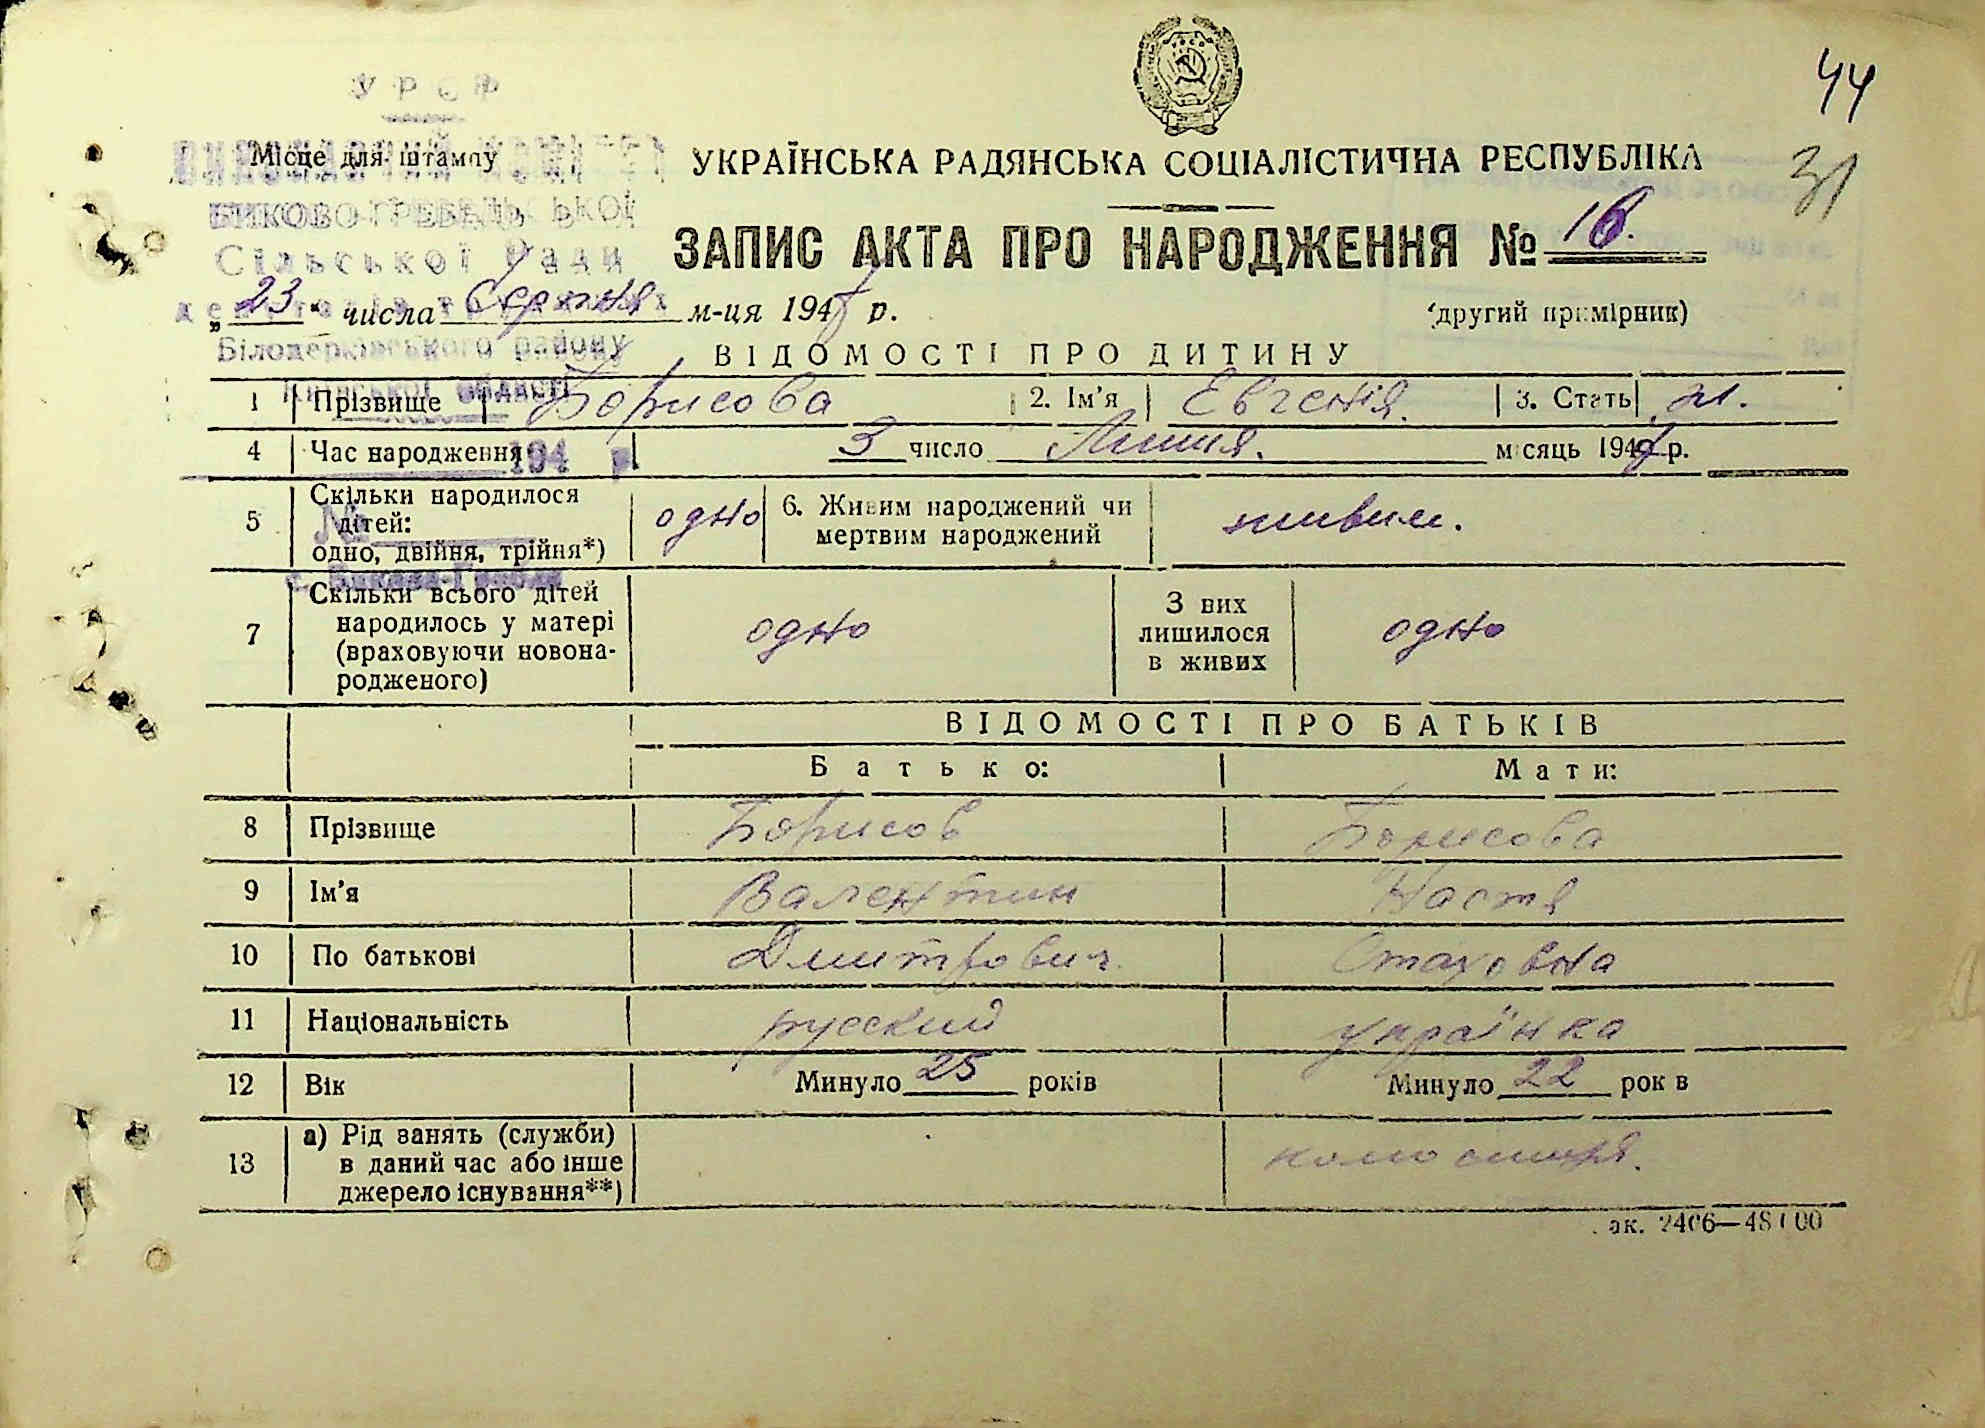 44
УРСР
Місце для штампу
УКРАЇНСЬКА РАДЯНСЬКА СОЦІАЛІСТИЧНА РЕСПУБЛІКА
31
ВИКОНАВЧИЙ КОМІТЕТ
БИКОВО-ГРЕБЕЛЬСЬКОЇ
Сільської Ради
ЗАПИС АКТА ПРО НАРОДЖЕННЯ № 16.
„23" числа Серпня м-ця 194 р.
(другий примірник)
Білоцерківського району
ВІДОМОСТІ ПРО ДИТИНУ
Київської області
1 Прізвище Борисова 2. Ім'я Евгенія. 3. Стать ж.
4 Час народження 3 число Липня. місяць 194 р.
194 р.
5 Скільки народилося дітей: одно, двійня, трійня*) одно 6. Живим народжений чи мертвим народжений живим.
№
с. Бикова-Гребля
7 Скільки всього дітей народилось у матері (враховуючи новонародженого) одно З них лишилося в живих одно
ВІДОМОСТІ ПРО БАТЬКІВ
Батько: Мати:
8 Прізвище Борисов Борисова
9 Ім'я Валентин Настя
10 По батькові Дмитрович. Стаховна
11 Національність русский українка
12 Вік Минуло 25 років Минуло 22 років
13 а) Рід занять (служби) в даний час або інше джерело існування**)
ак. 2406—48 00